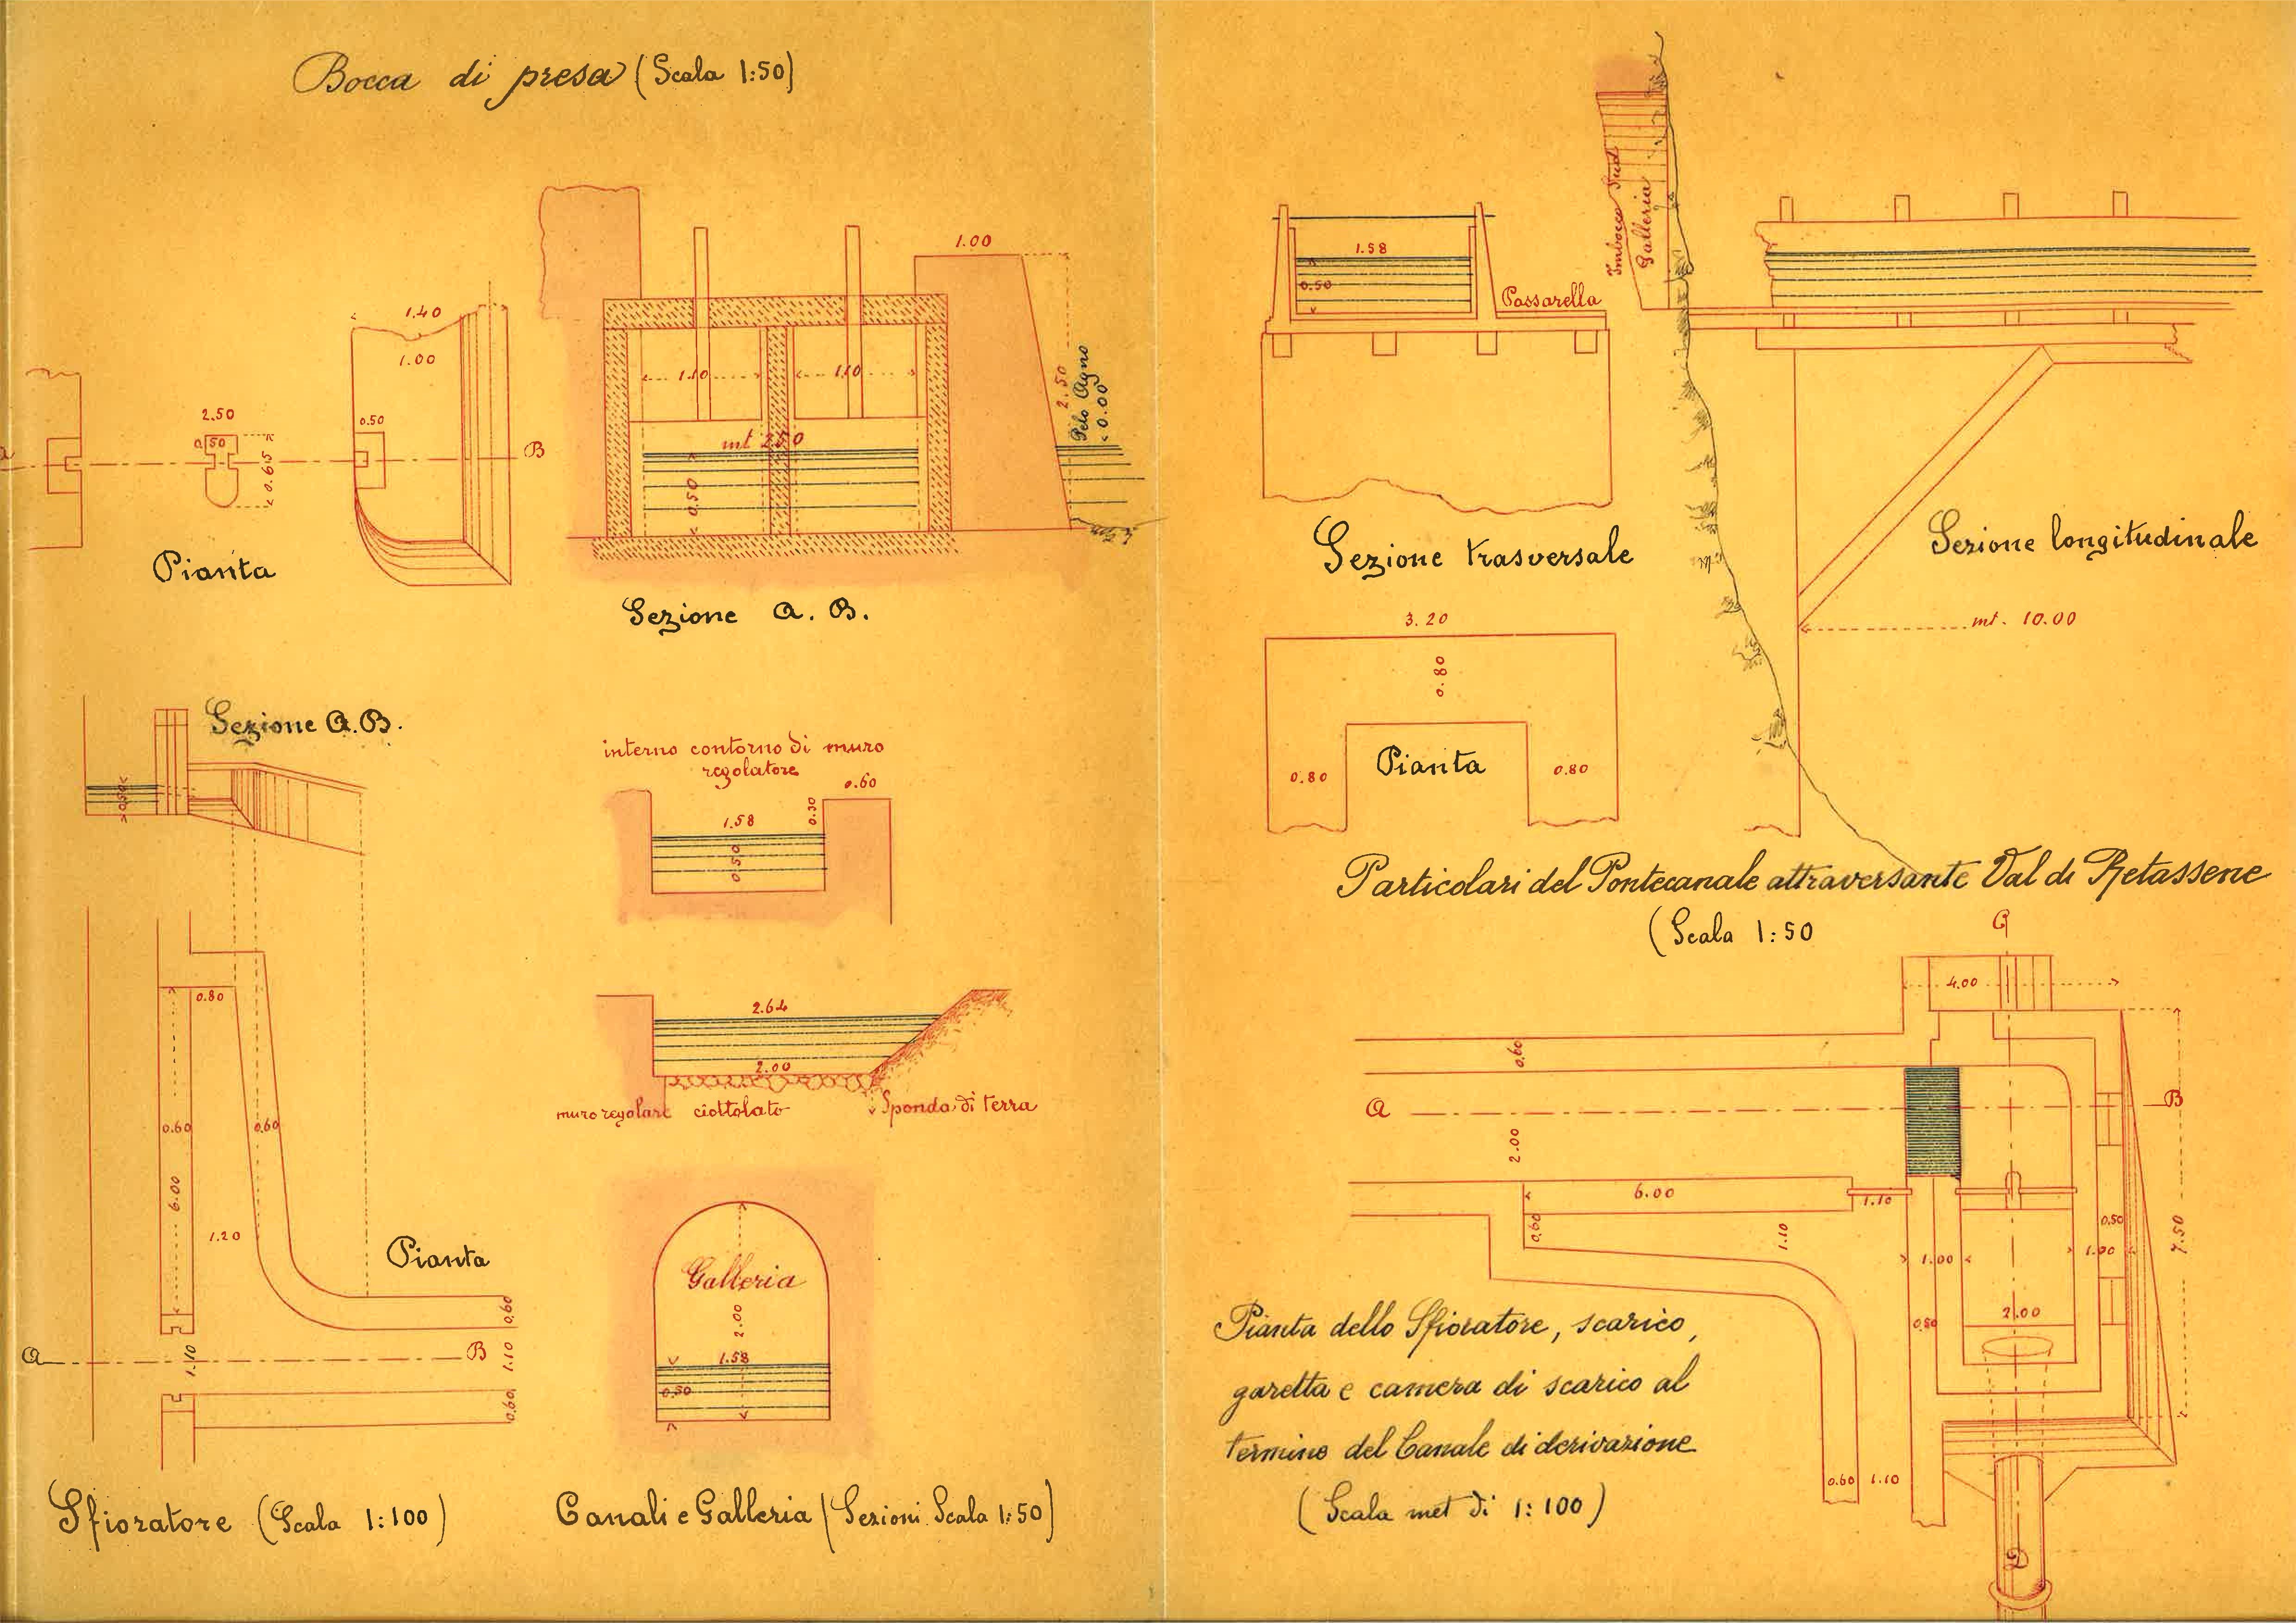 Bocca di presa (Scala 1:50)
1.40
1.00
2.50
0.50
0.65
0.50
B
Pianta
1.00
1.10
1.10
mt 2.50
0.50
2.50
Pelo Agno
0.00
Sezione A. B.
Sezione A.B.
0.50
0.80
0.60
0.60
6.00
1.20
Pianta
0.60
A
B
1.10
1.10
0.60
Sfioratore (Scala 1:100)
interno contorno di muro
regolatore
0.60
1.58
0.30
0.50
2.64
2.00
muro regolare
ciottolato
Sponda di terra
Galleria
2.00
1.58
0.50
Canali e Galleria (Sezioni Scala 1:50)
1.58
0.50
Passarella
Imbocco Sud
Galleria
Sezione trasversale
Sezione longitudinale
mt. 10.00
3.20
0.80
0.80
Pianta
0.80
Particolari del Pontecanale attraversante Val di Retassene
(Scala 1:50
4.00
0.60
A
B
2.00
6.00
1.10
0.60
1.10
0.50
1.00
1.00
7.50
2.00
0.80
0.60
1.10
Pianta dello Sfioratore, scarico,
garetta e camera di scarico al
termine del Canale di derivazione
(Scala met di 1:100)